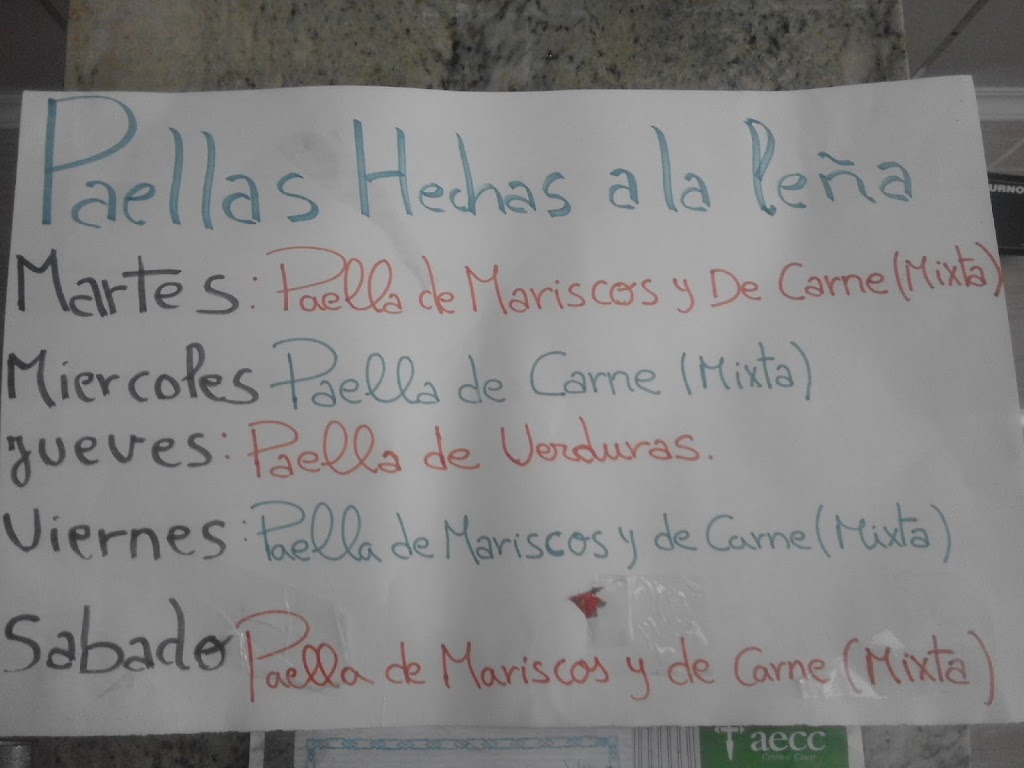 Paellas Hechas a la leña
Martes: Paella de Mariscos y De Carne (Mixta)
Miercoles Paella de Carne (Mixta)
Jueves: Paella de Verduras.
Viernes: Paella de Mariscos y de Carne (Mixta)
Sabado Paella de Mariscos y de Carne (Mixta)
URNO
aecc